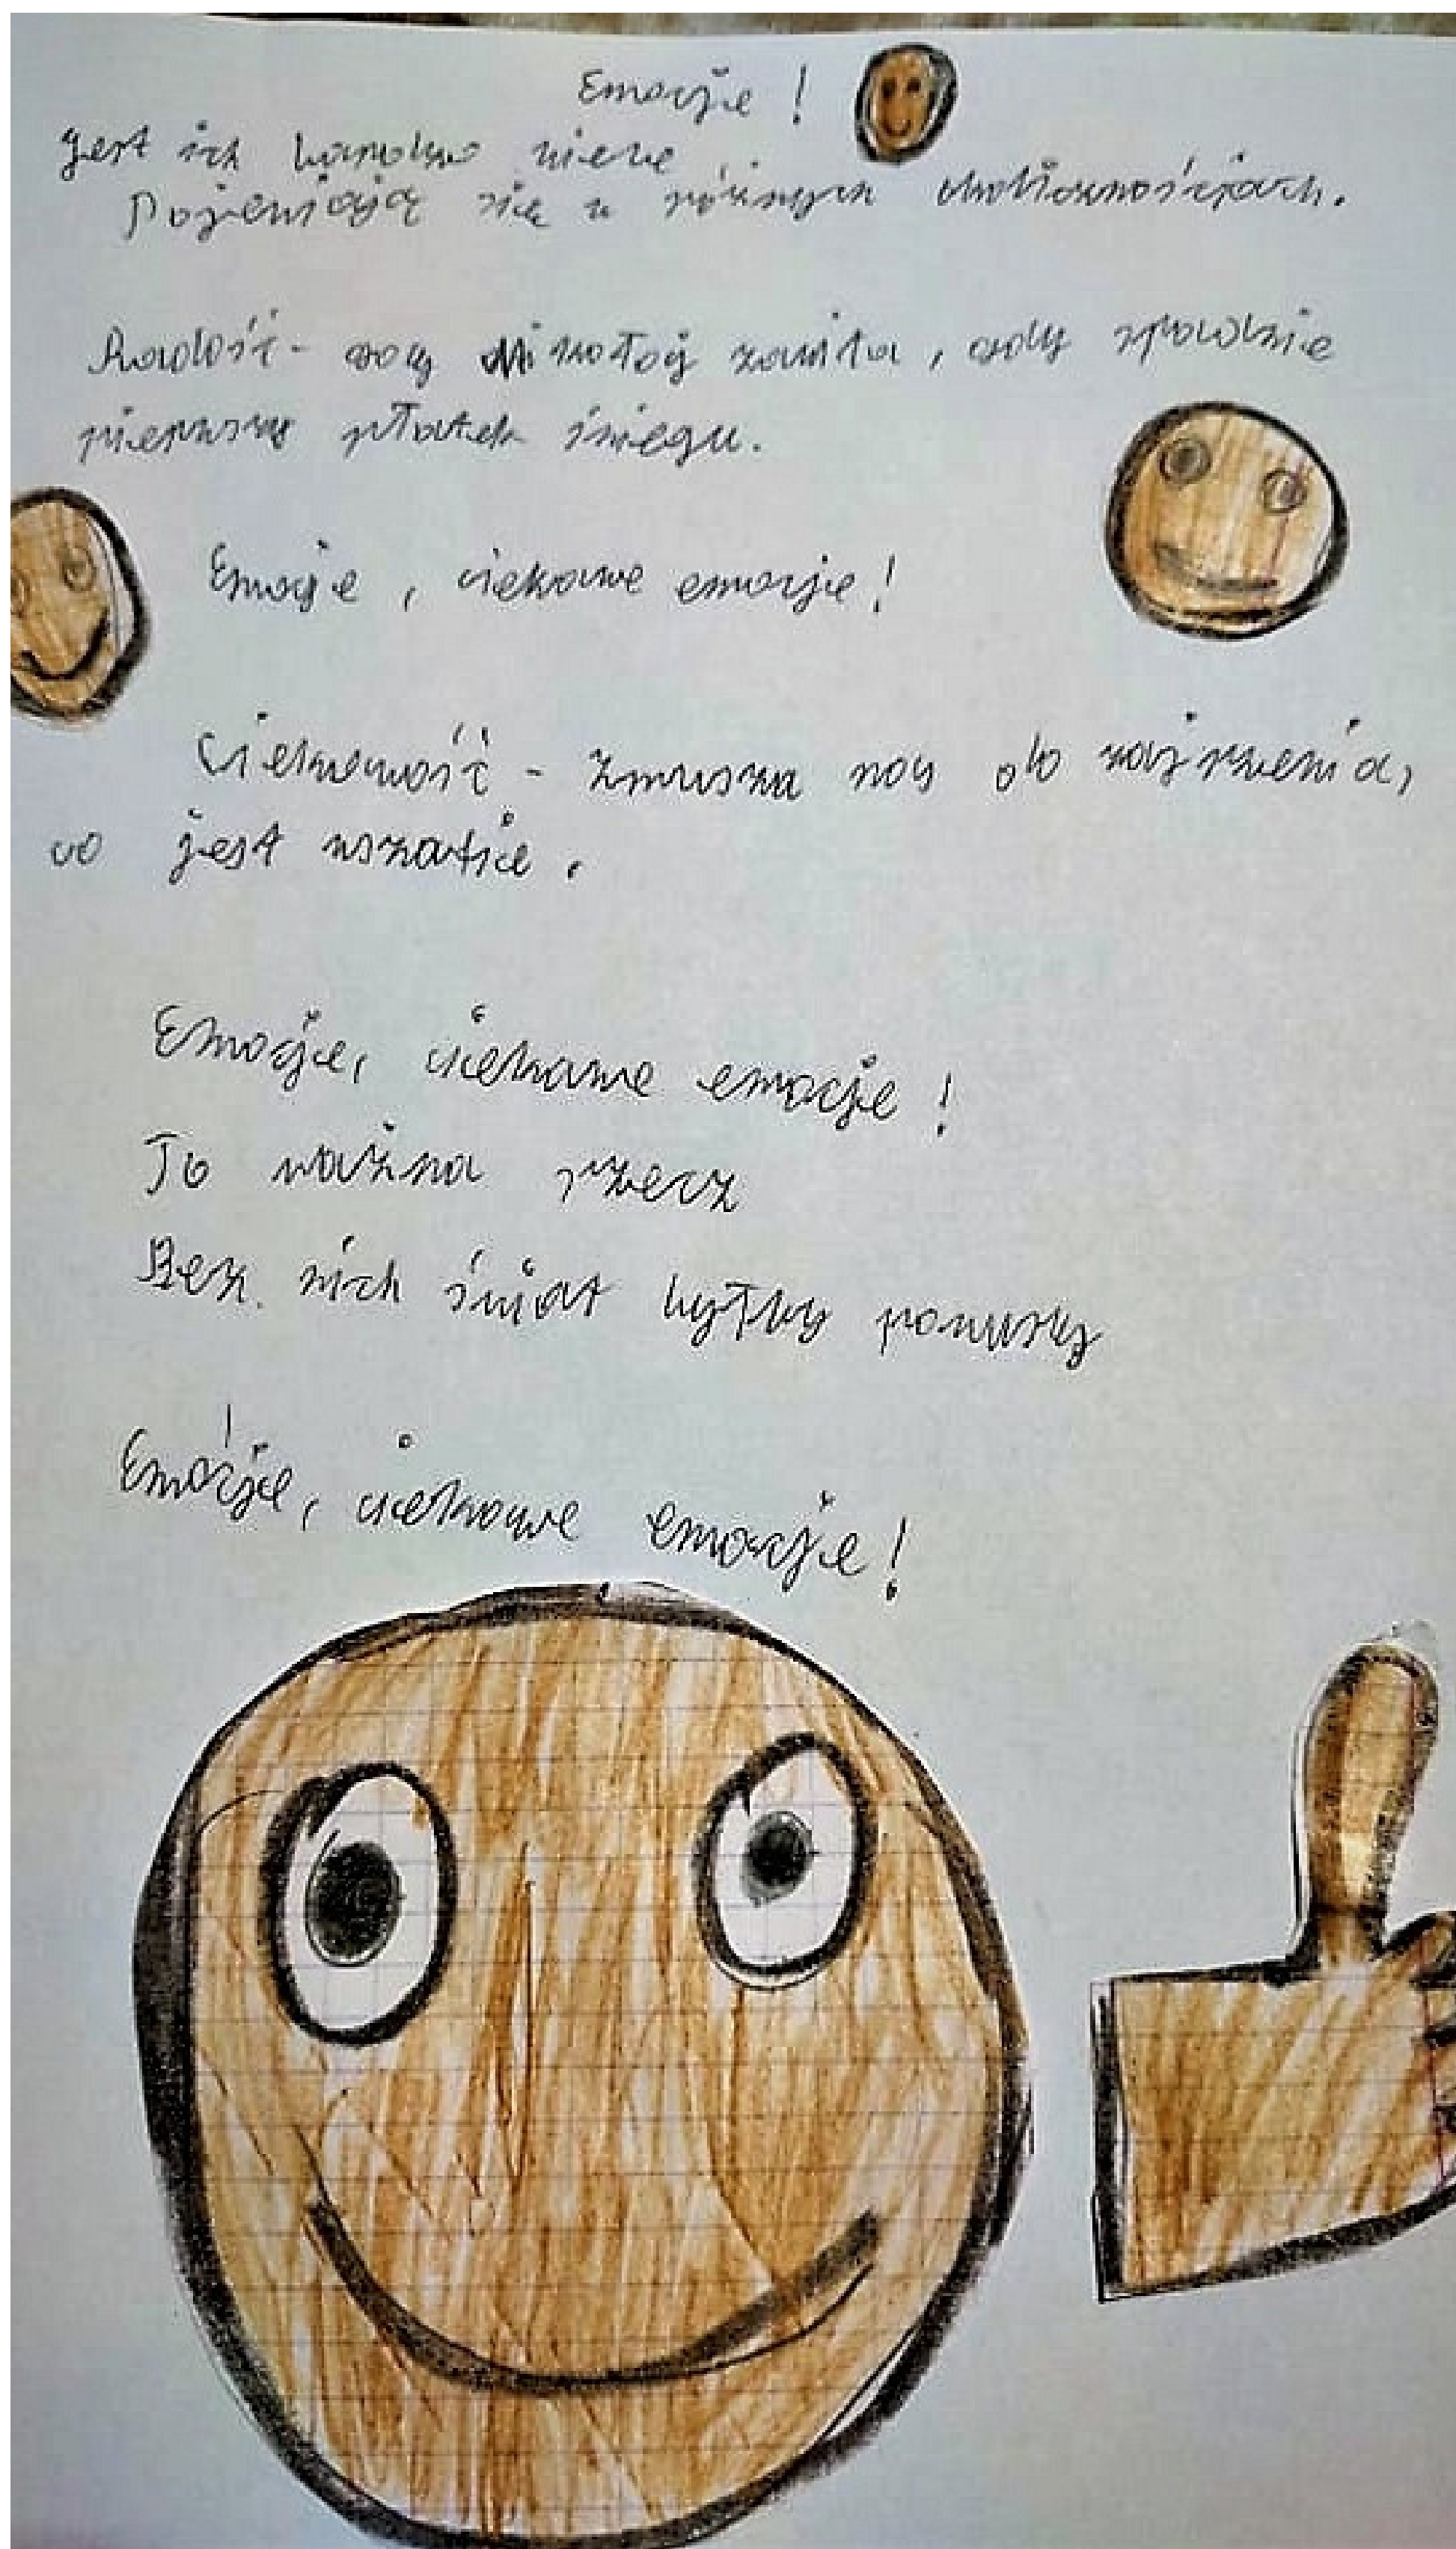 Emocje!
Jest ich bardzo wiele,
Pojawiają się w różnych okolicznościach.
Radość - gdy Mikołaj zawita, gdy spadnie
pierwszy płatek śniegu.
Emocje, ciekawe emocje!
Ciekawość - zmusza nas do zajrzenia,
co jest w szafie.
Emocje, ciekawe emocje!
To ważna rzecz
Bez nich świat byłby ponury
Emocje, ciekawe emocje!